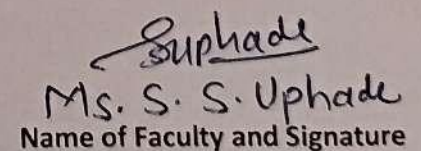 Suphade
Ms. S. S. Uphade
Name of Faculty and Signature